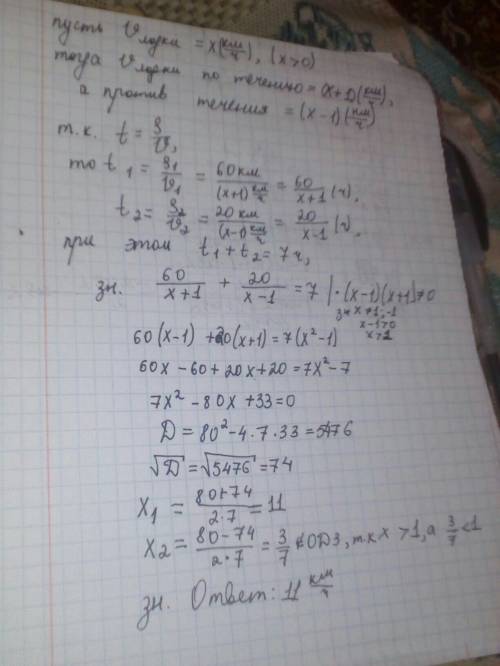 пусть V лодки = x (км/ч), (x>0)
тогда V лодки по течению = (x+1) (км/ч),
а против течения = (x-1) (км/ч)
т.к. t = S/V,
то t₁ = S₁/V₁ = 60 км/(x+1) км/ч = 60/(x+1) (ч),
t₂ = S₂/V₂ = 20 км/(x-1) км/ч = 20/(x-1) (ч),
при этом t₁ + t₂ = 7 ч,
зн. 60/(x+1) + 20/(x-1) = 7 | ·(x-1)(x+1) ≠ 0
зн x ≠ 1; -1
x-1>0
x>1
60(x-1) + 20(x+1) = 7(x²-1)
60x - 60 + 20x + 20 = 7x² - 7
7x² - 80x + 33 = 0
D = 80² - 4·7·33 = 5476
√D = √5476 = 74
x₁ = (80+74)/(2·7) = 11
x₂ = (80-74)/(2·7) = 3/7 ∉ ОДЗ, т.к x > 1, а 3/7 < 1
зн. Ответ: 11 км/ч